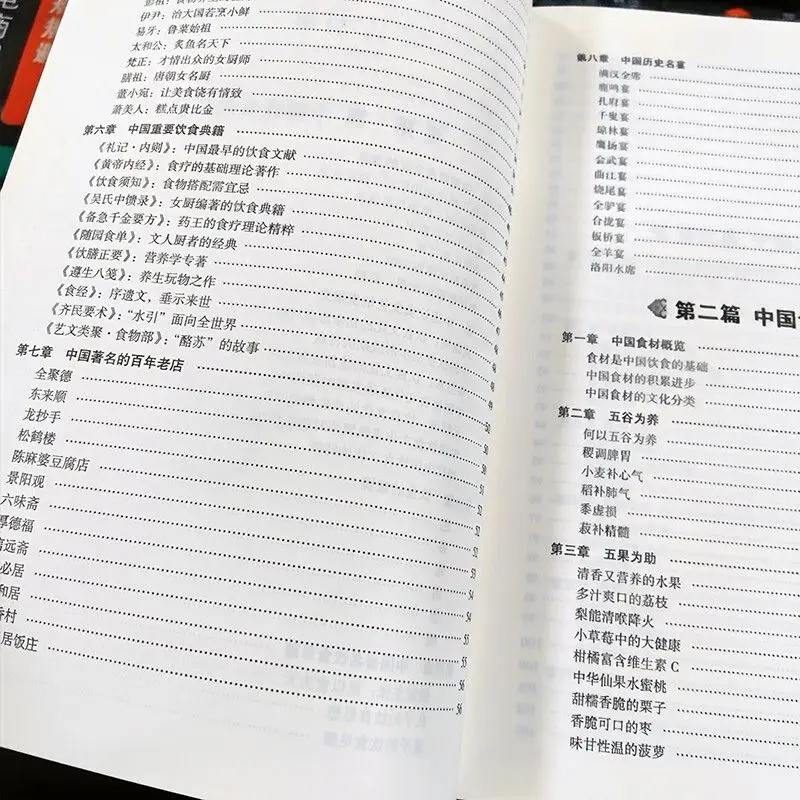 伊尹：治大国若烹小鲜
易牙：鲁菜始祖
太和公：炙鱼名天下
梵正：才情出众的女厨师
膳祖：唐朝女名厨
董小宛：让美食饶有情致
萧美人：糕点贵比金
第六章 中国重要饮食典籍
《礼记·内则》：中国最早的饮食文献
《黄帝内经》：食疗的基础理论著作
《饮食须知》：食物搭配需宜忌
《吴氏中馈录》：女厨编著的饮食典籍
《备急千金要方》：药王的食疗理论精粹
《随园食单》：文人厨者的经典
《饮膳正要》：营养学专著
《遵生八笺》：养生玩物之作
《食经》：序遗文，垂示来世
《齐民要术》：“水引”面向全世界
《艺文类聚·食物部》：“酪苏”的故事
第七章 中国著名的百年老店
全聚德
东来顺
龙抄手
松鹤楼
陈麻婆豆腐店 51
景阳观 52
六味斋 52
厚德福
远斋 53
必居 54
和居 54
香村 55
居饭庄 55
56
56
第八章 中国历史名宴
满汉全席
鹿鸣宴
孔府宴
千叟宴
琼林宴
鹰扬宴
会武宴
曲江宴
烧尾宴
全驴宴
台拢宴
板桥宴
全羊宴
洛阳水席
第二篇 中国
第一章 中国食材概览
食材是中国饮食的基础
中国食材的积累进步
中国食材的文化分类
第二章 五谷为养
何以五谷为养
稷调脾胃
小麦补心气
稻补肺气
黍虚损
菽补精髓
第三章 五果为助
清香又营养的水果
多汁爽口的荔枝
梨能清喉降火
小草莓中的大健康
柑橘富含维生素 C
中华仙果水蜜桃
甜糯香脆的栗子
香脆可口的枣
味甘性温的菠萝